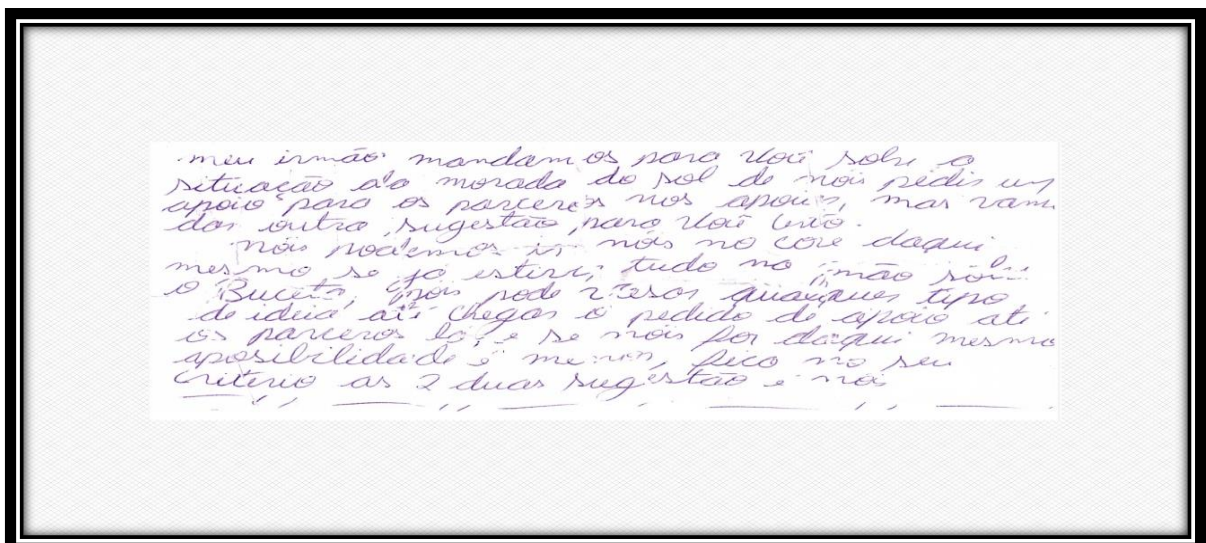 meu irmão mandamos para você sobre a
situação da morada do sol de nois pedir um
apoio para os parceiros nos apoiar, mas vam
dar outra sugestão para você então.
nois podemos ir nois no core daqui
mesmo se já estiver tudo na mão
o nois pode usar quaisquer tipo
de ideia até chegar o pedido de apoio até
os parceros lá, e se nois for daqui mesmo
aposibilidade é menor, fico no seu
criterio as 2 duas sugestão e nois